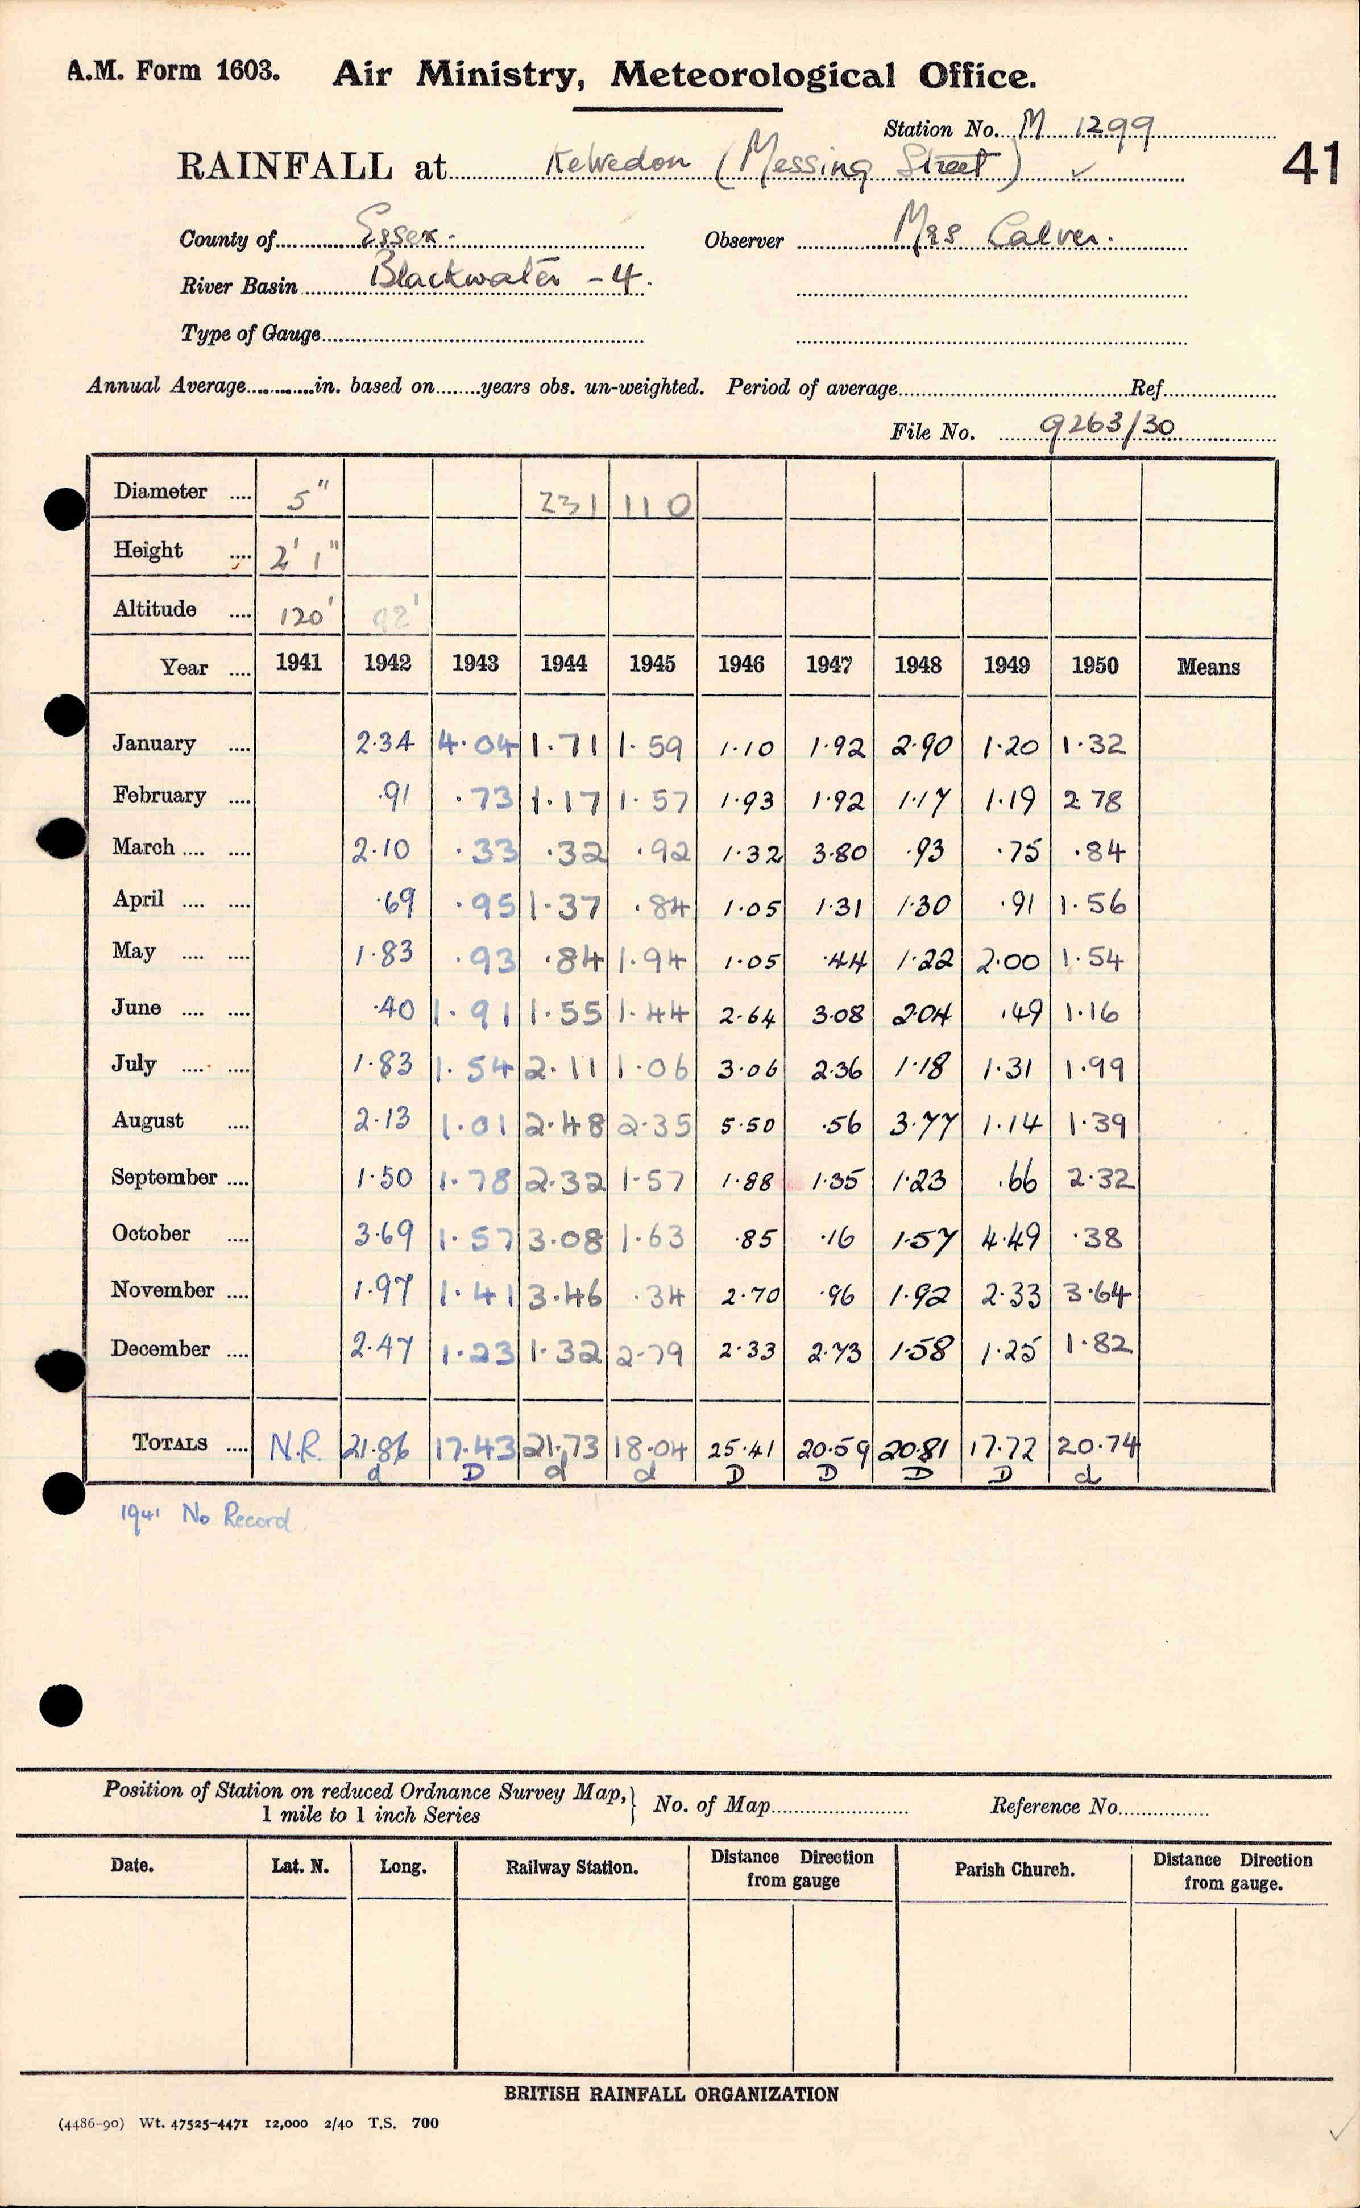 A.M. Form 1603. Air Ministry, Meteorological Office.
Station No. M 1299
41
RAINFALL at Kelvedon (Messing Street) ✓
County of Essex. Observer Mrs Calver.
River Basin Blackwater - 4.
Type of Gauge
Annual Average in. based on years obs. un-weighted. Period of average Ref.
File No. 9263/30
Diameter .... 5" 231 110
Height .... 2' 1"
Altitude .... 120' 92'
Year .... 1941 1942 1943 1944 1945 1946 1947 1948 1949 1950 Means
January .... 2.34 4.04 1.71 1.59 1.10 1.92 2.90 1.20 1.32
February .... .91 .73 1.17 1.57 1.93 1.92 1.17 1.19 2 78
March .... .... 2.10 .33 .32 .92 1.32 3.80 .93 .75 .84
April .... .... .69 .95 1.37 .84 1.05 1.31 1.30 .91 1.56
May .... .... 1.83 .93 .84 1.94 1.05 .44 1.22 2.00 1.54
June .... .... .40 1.91 1.55 1.44 2.64 3.08 2.04 .49 1.16
July .... .... 1.83 1.54 2.11 1.06 3.06 2.36 1.18 1.31 1.99
August .... 2.13 1.01 2.48 2.35 5.50 .56 3.77 1.14 1.39
September .... 1.50 1.78 2.32 1.57 1.88 1.35 1.23 .66 2.32
October .... 3.69 1.57 3.08 1.63 .85 .16 1.57 4.49 .38
November .... 1.97 1.41 3.46 .34 2.70 .96 1.92 2.33 3.64
December .... 2.47 1.23 1.32 2.79 2.33 2.73 1.58 1.25 1.82
TOTALS .... N.R. 21.86 17.43 21.73 18.04 25.41 20.59 20.81 17.72 20.74
d D d d D D D D d
1941 No Record
Position of Station on reduced Ordnance Survey Map, 1 mile to 1 inch Series } No. of Map Reference No.
Date. Lat. N. Long. Railway Station. Distance Direction from gauge Parish Church. Distance Direction from gauge.
BRITISH RAINFALL ORGANIZATION
(4486-90) Wt. 47525-4471 12,000 2/40 T.S. 700